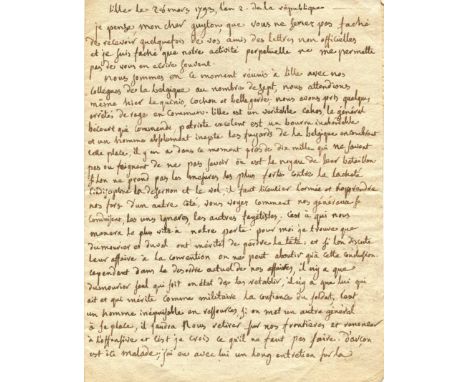 lille le 26 mars 1793 l'an 2 de la république
je pense mon cher guyton, que vous ne serez pas faché
de recevoir quelquefois de vos amis des lettres non officielles
et je suis faché que notre activité perpetuelle ne me permette
pas de vous en ecrire souvent.
nous sommes en ce moment réunis à lille avec nos
collegues de la belgique au nombre de sept, nous attendions
même hier lequinio, cochon et bellegarde. nous avons pris quelques
arrêtés de rage en commun. lille est un veritable cahos, le général
qui commande patriote excellent est un bourru
et un homme absolument inepte. les fuyards de la belgique encombrent
cette place, il y en a dans ce moment près de dix mille qui ne savent
pas ou feignent de ne pas savoir où est le noyau de leur bataillon
si l'on ne prend pas les mesures les plus fortes contre la lacheté
l'indiscipline la desertion et le vol, il faut licencier l'armée et
nos fers d'un autre côté, vous voyez comment nos généraux se
conduisent, les uns ignares, les autres fayétistes. c'est à qui nous
menera le plus vite à notre perte. pour moi je trouve que
dumourier et duval ont mérité de perdre la tête. et si l'on discute
leur affaire à la convention on ne peut aboutir qu'à cette conclusion
cependant dans le desordre actuel de nos affaires, il n'y a que
dumourier seul qui soit en état de les retablir, il n'y a que lui qui
ait et qui mérite comme militaire la confiance du soldat, c'est
un homme inépuisable en ressources, si on met un autre général
à sa place, il faudra nous retirer sur nos frontieres et renoncer
à l'offensive et c'est je crois ce qu'il ne faut pas faire. d'arçon
est ici malade, j'ai eu avec lui un long entretien sur la